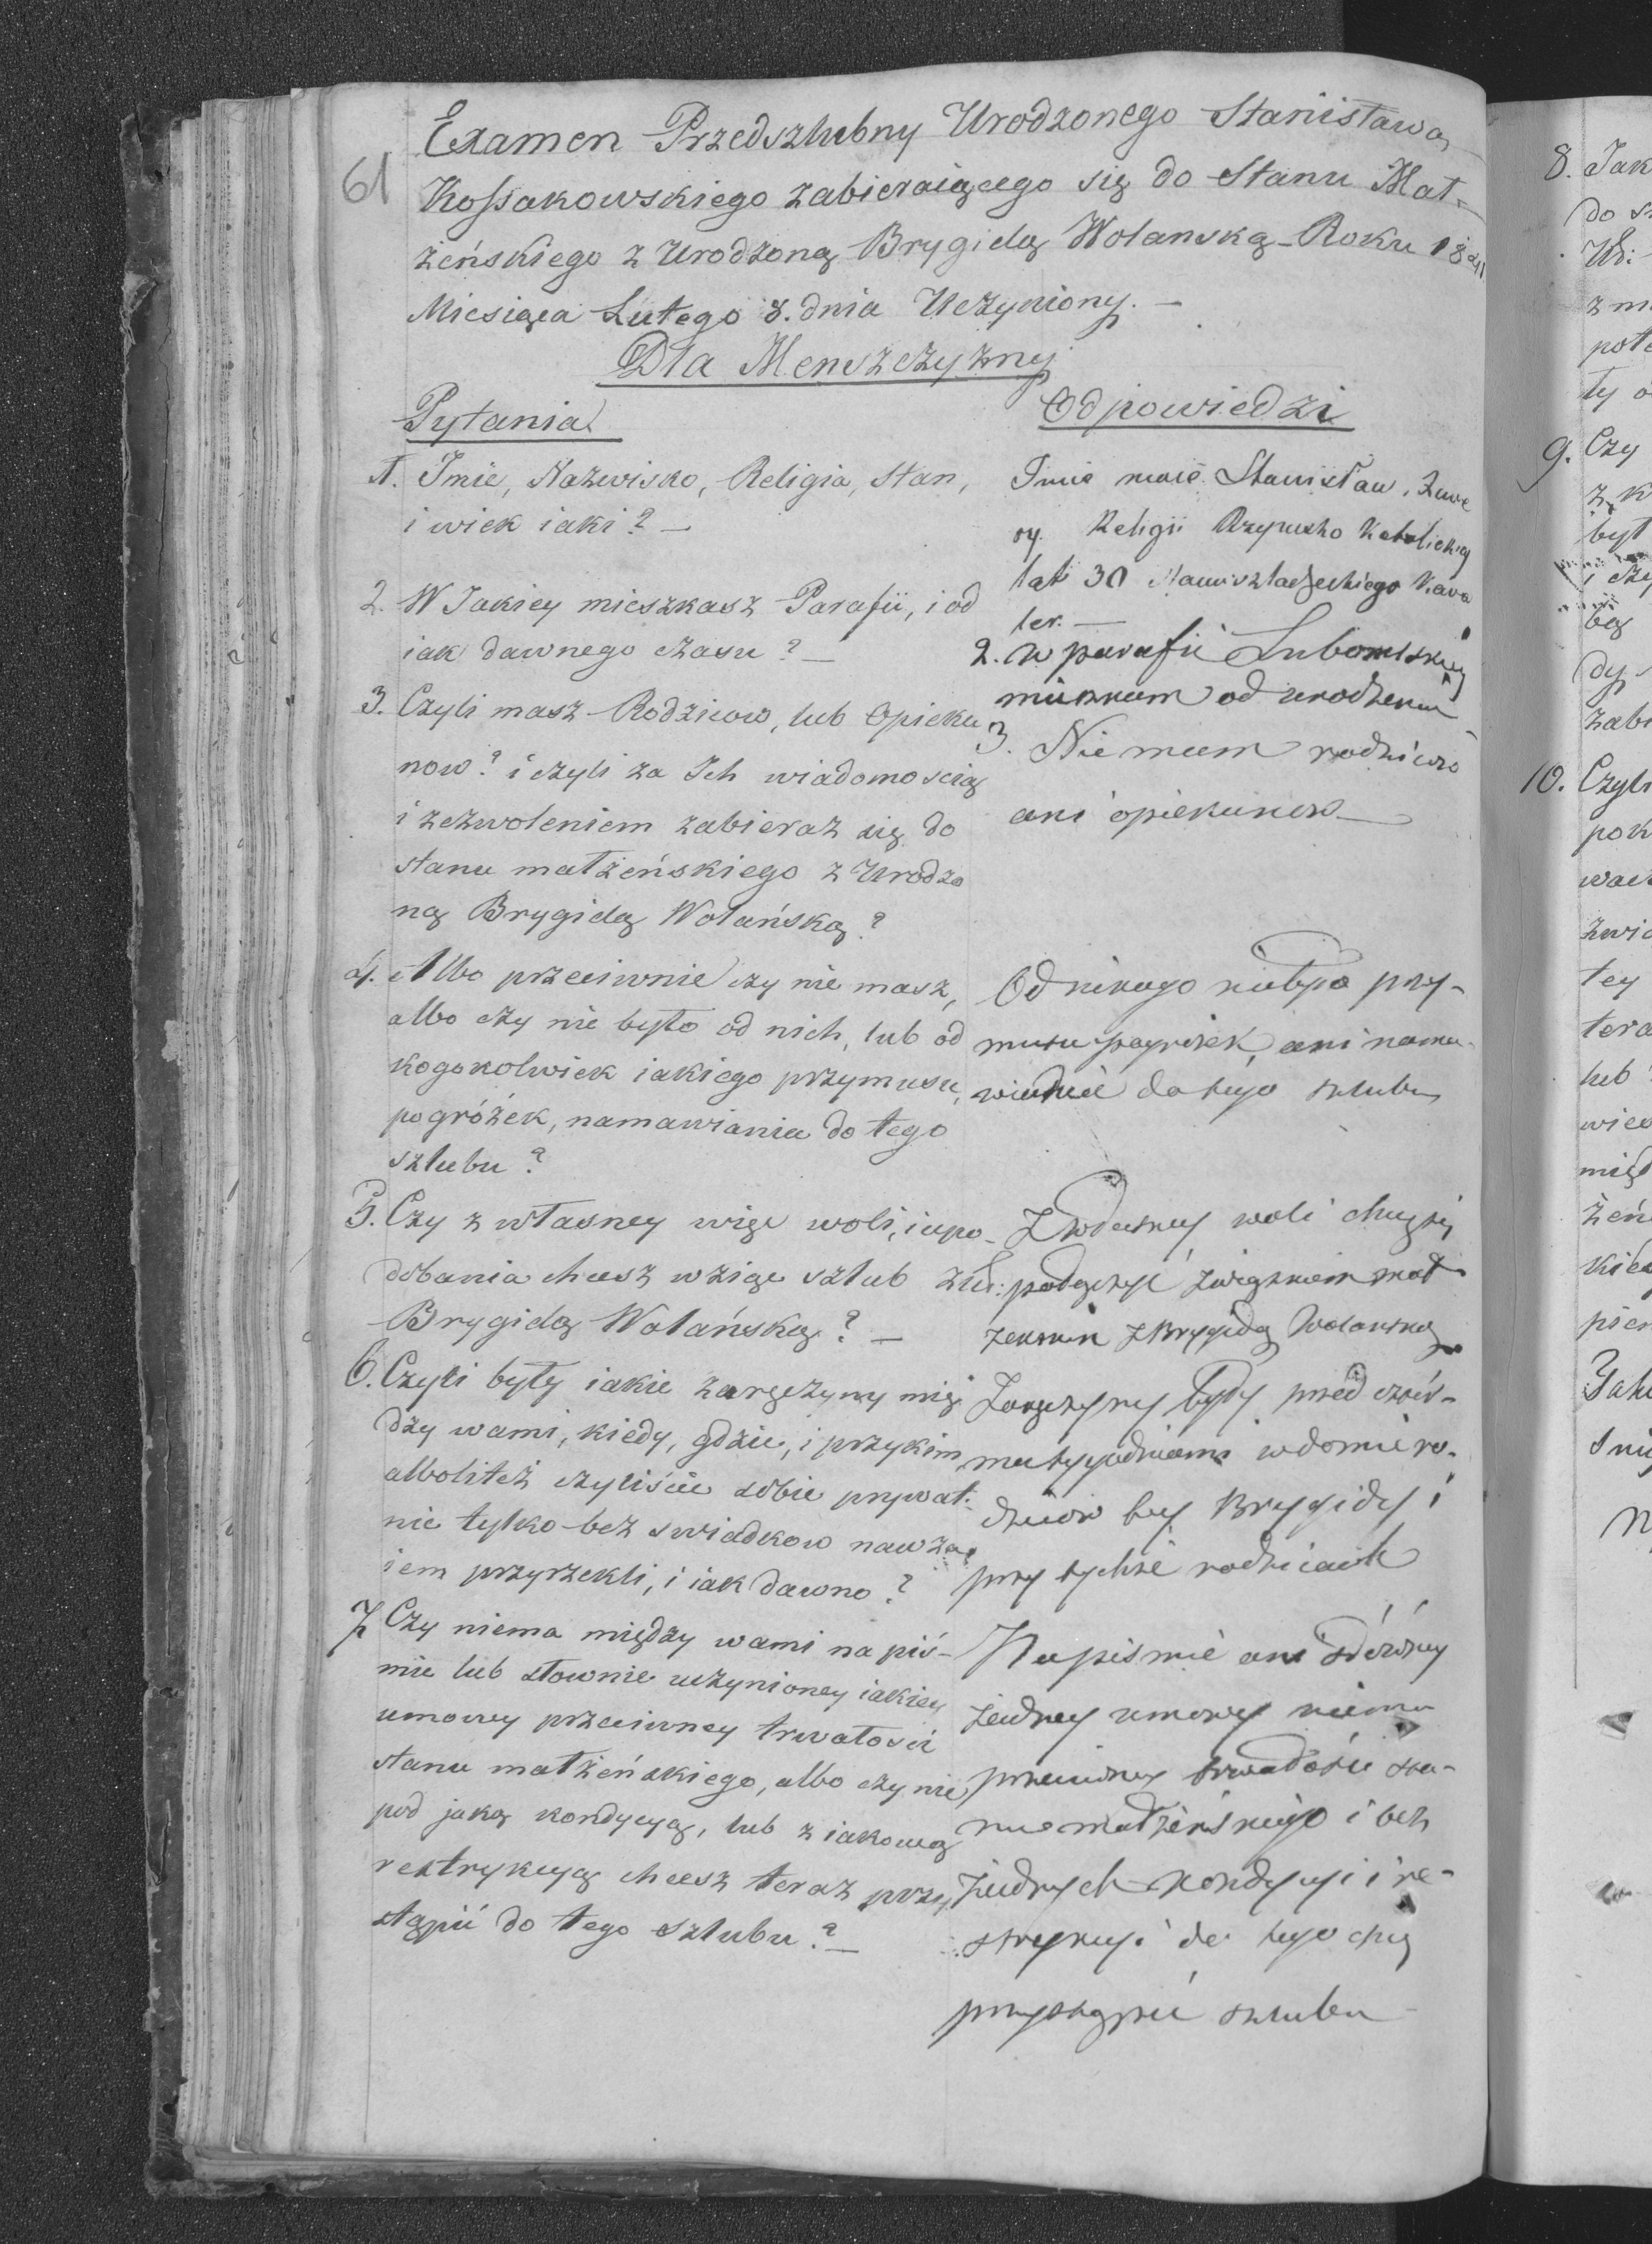 61
Examen Przedszlubny Urodzonego Stanisława
Kossakowskiego zabieraiącego się do Stanu Mał-
żeńskiego z Urodzoną Brygidą Wolanską Roku 1841
Miesiąca Lutego 8. dnia Uczyniony. —
Dla Menszczyzny
Pytania
1. Jmie, Nazwisko, Religia, Stan,
i wiek iaki? —
2. W Jakiey mieszkasz Parafii, i od
iak dawnego czasu? —
3. Czyli masz Rodzicow, lub Opieku
now? i czyli za Ich wiadomoscią
i zezwoleniem zabieraz się do
stanu małżeńskiego z Urodzo
ną Brygidą Wolańską?
4. Albo przeciwnie czy nie masz,
albo czy nie było od nich, lub od
kogokolwiek iakiego przymusu,
pogróżek, namawiania do tego
szlubu?
5. Czy z własney więc woli, i upo-
dobania chcesz wziąc szlub z Ur:
Brygidą Wolańską? —
6. Czyli były iakie zaręczyny mię
dzy wami, kiedy, gdzie, i przykim
albolitéż czyliście sobie prywat:
nie tylko bez swiadkow nawza
iem przyrzekli, i iak dawno?
7 Czy niema między wami na piś-
mie lub słownie uczynioney iakiey
umowy przeciwney trwałosci
stanu małżeńskiego, albo czy nie
pod jaką kondycyą, lub z iakową
restrykcyą chcesz teraz przy
stąpić do tego szlubu? —
Odpowiedzi
Jmie moie Stanisław,
Religii Rzymsko Katolickiey
lat 30 Stanu szlacheckiego Kawa
ler. —
2. w parafii
mieszkam od urodzenia
3. Nie mam rodziców
ani opiekunow —
Od nikogo niebyło przy-
musu pogrożek, ani nama-
wiania do tego szlubu
Z własney woli chcę się
połączyć związkiem mał-
żenskim z Brygidą Wolanską
Zaręczyny były przed
tygodniami w domie ro-
dziców tey Brygidy i
przy tychże rodzicach
Na piśmie ani słówney
żadney umowy niema
przeciwney trwałości sta-
nu małżeńskiego i bez
żadnych kondycyi i re-
strykcyi do tego chcę
przystąpić szlubu
8. Jak
do s
Ur:
z m
poto
ty o
9. Czy
z k
był
i czy
bą
dy
zabi
10. Czyli
pok
wac
zwią
tey
tera
lub
wied
międ
żeń
kied
pier